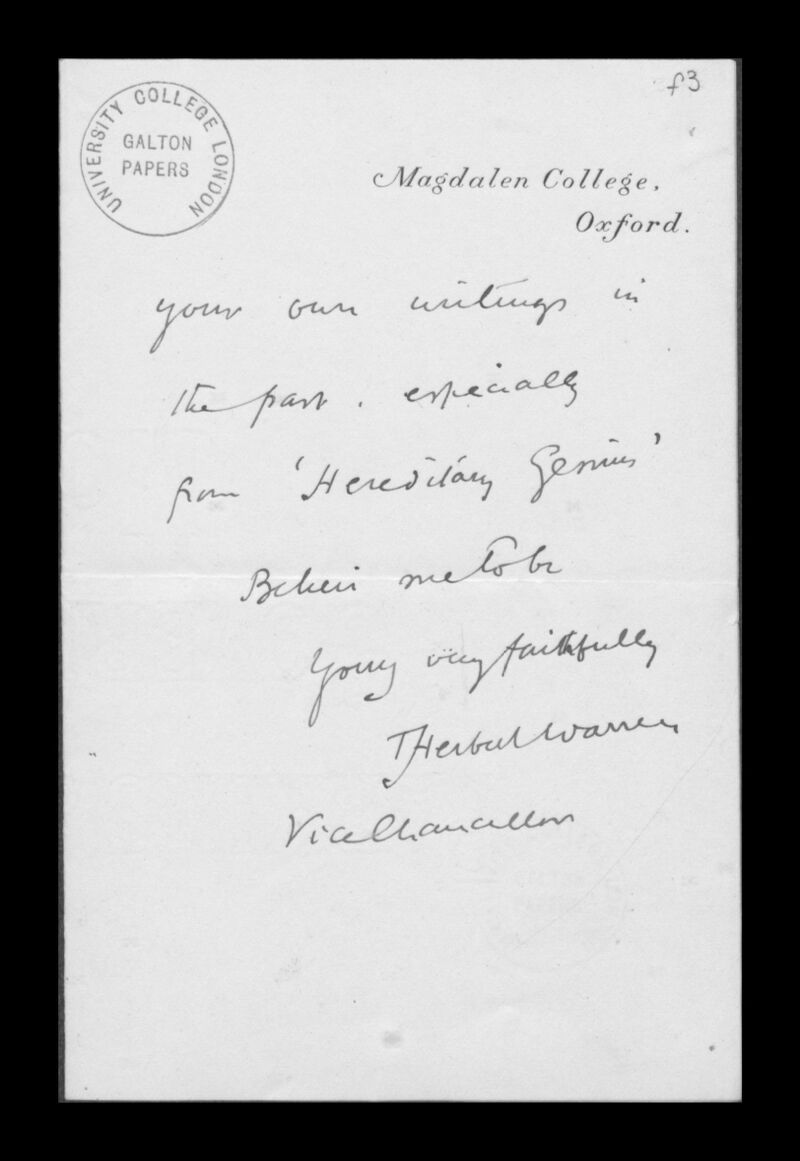 f3
UNIVERSITY COLLEGE LONDON
GALTON
PAPERS
Magdalen College,
Oxford.
your own writings in
the past. especially
from 'Hereditary Genius'
Believe me to be
Yours very faithfully
THerbert Warren
Vice Chancellor